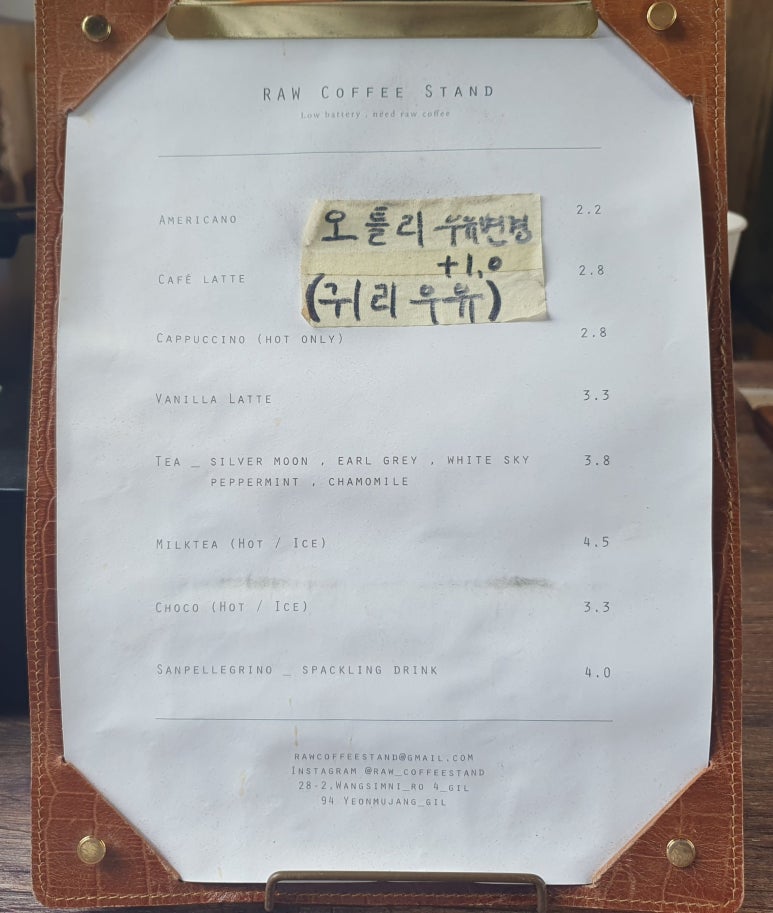 RAW COFFEE STAND
Low battery , need raw coffee
AMERICANO 2.2
오틀리 우유변경
+1.0
(귀리 우유)
CAFÉ LATTE 2.8
CAPPUCCINO (HOT ONLY) 2.8
VANILLA LATTE 3.3
TEA _ SILVER MOON , EARL GREY , WHITE SKY 3.8
PEPPERMINT , CHAMOMILE
MILKTEA (HOT / ICE) 4.5
CHOCO (HOT / ICE) 3.3
SANPELLEGRINO _ SPACKLING DRINK 4.0
RAWCOFFEESTAND@GMAIL.COM
INSTAGRAM @RAW_COFFEESTAND
28-2,WANGSIMNI_RO 4_GIL
94 YEONMUJANG_GIL